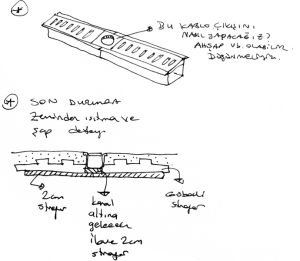 BU KABLO ÇIKIŞINI
NASIL YAPACAĞIZ?
AHŞAP VB. OLABİLİR.
DÜŞÜNMELİYİZ.
SON DURUMDA
Zeminden ısıtma ve
şap detayı
2cm
strafor
kanal
altına
gelecek
ilave 2cm
strafor
Göbekli
strafor